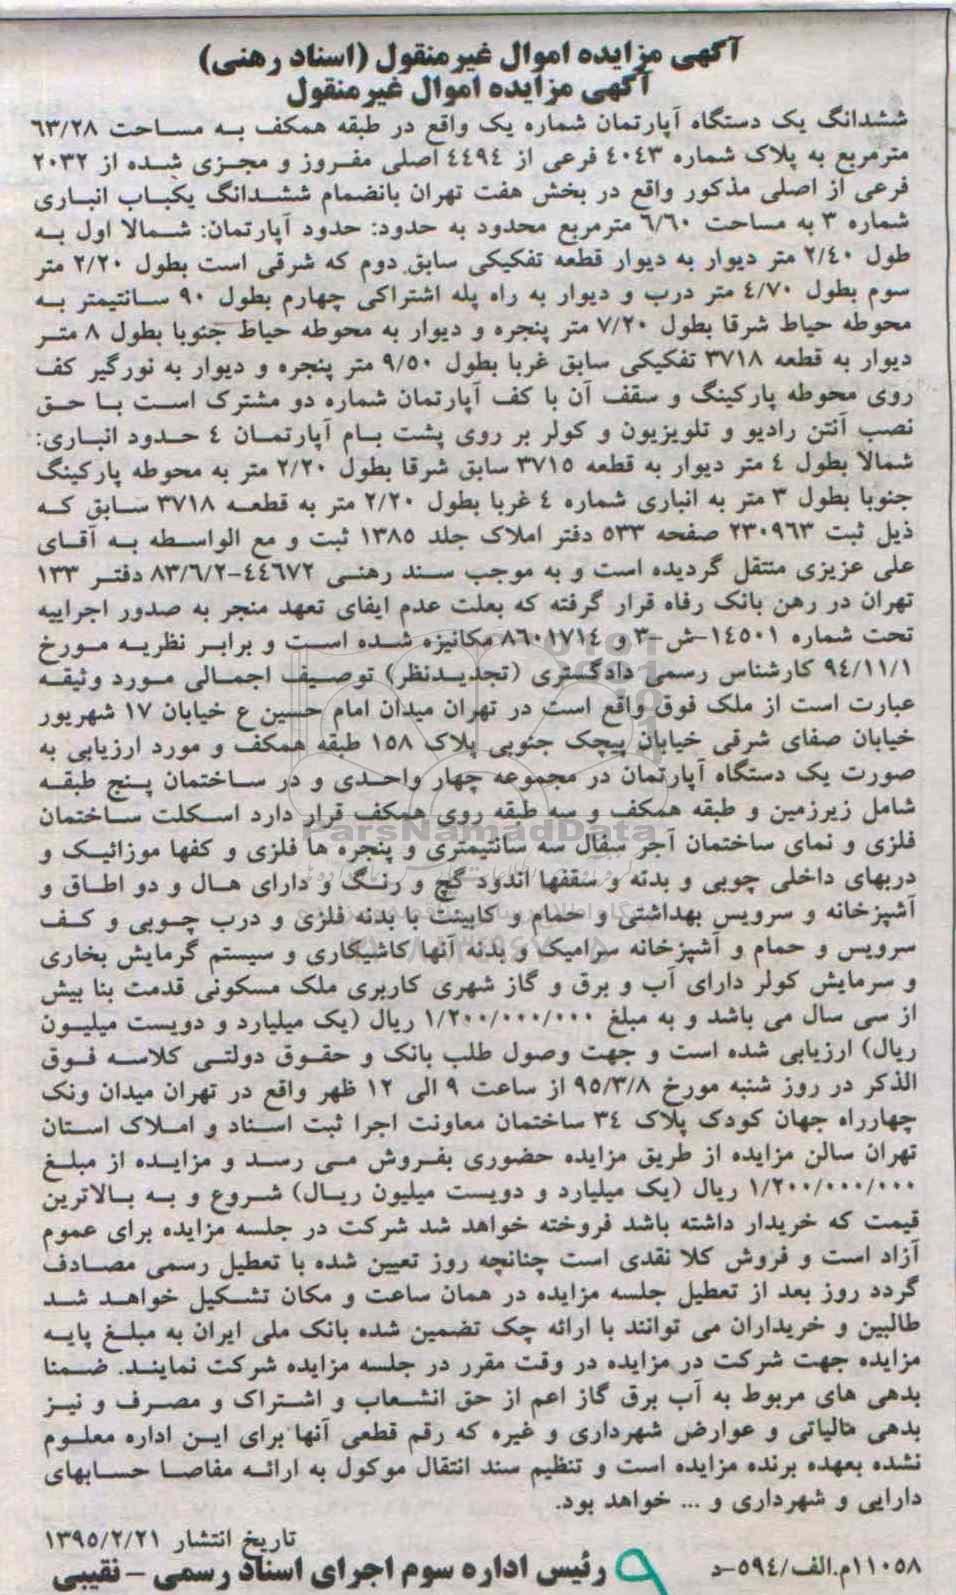 آگهی مزایده اموال غیرمنقول (اسناد رهنی)
آگهی مزایده اموال غیرمنقول
ششدانگ یک دستگاه آپارتمان شماره یک واقع در طبقه همکف به مساحت ۶۳/۲۸
مترمربع به پلاک شماره ۴۰۴۳ فرعی از ۴۴۹۴ اصلی مفروز و مجزی شده از ۲۰۳۲
فرعی از اصلی مذکور واقع در بخش هفت تهران بانضمام ششدانگ یکباب انباری
شماره ۳ به مساحت ۶/۶۰ مترمربع محدود به حدود: حدود آپارتمان: شمالا اول به
طول ۲/۴۰ متر دیوار به دیوار قطعه تفکیکی سابق دوم که شرقی است بطول ۲/۲۰ متر
سوم بطول ۴/۷۰ متر درب و دیوار به راه پله اشتراکی چهارم بطول ۹۰ سانتیمتر به
محوطه حیاط شرقا بطول ۷/۲۰ متر پنجره و دیوار به محوطه حیاط جنوبا بطول ۸ متر
دیوار به قطعه ۳۷۱۸ تفکیکی سابق غربا بطول ۹/۵۰ متر پنجره و دیوار به نورگیر کف
روی محوطه پارکینگ و سقف آن با کف آپارتمان شماره دو مشترک است با حق
نصب آنتن رادیو و تلویزیون و کولر بر روی پشت بام آپارتمان ۴ حدود انباری:
شمالا بطول ۴ متر دیوار به قطعه ۳۷۱۵ سابق شرقا بطول ۲/۲۰ متر به محوطه پارکینگ
جنوبا بطول ۳ متر به انباری شماره ۴ غربا بطول ۲/۲۰ متر به قطعه ۳۷۱۸ سابق که
ذیل ثبت ۲۳۰۹۶۳ صفحه ۵۳۳ دفتر املاک جلد ۱۳۸۵ ثبت و مع الواسطه به آقای
علی عزیزی منتقل گردیده است و به موجب سند رهنی ۴۴۶۷۲-۸۳/۶/۲ دفتر ۱۳۳
تهران در رهن بانک رفاه قرار گرفته که بعلت عدم ایفای تعهد منجر به صدور اجراییه
تحت شماره ۱۴۵۰۱-ش-۳ و ۸۶۰۱۷۱۴ مکانیزه شده است و برابر نظریه مورخ
۹۴/۱۱/۱ کارشناس رسمی دادگستری (تجدیدنظر) توصیف اجمالی مورد وثیقه
عبارت است از ملک فوق واقع است در تهران میدان امام حسین ع خیابان ۱۷ شهریور
خیابان صفای شرقی خیابان پیچک جنوبی پلاک ۱۵۸ طبقه همکف و مورد ارزیابی به
صورت یک دستگاه آپارتمان در مجموعه چهار واحدی و در ساختمان پنج طبقه
شامل زیرزمین و طبقه همکف و سه طبقه روی همکف قرار دارد اسکلت ساختمان
فلزی و نمای ساختمان آجر سفال سه سانتیمتری و پنجره ها فلزی و کفها موزائیک و
دربهای داخلی چوبی و بدنه و سقفها اندود گچ و رنگ و دارای هال و دو اطاق و
آشپزخانه و سرویس بهداشتی و حمام و کابینت با بدنه فلزی و درب چوبی و کف
سرویس و حمام و آشپزخانه سرامیک و بدنه آنها کاشیکاری و سیستم گرمایش بخاری
و سرمایش کولر دارای آب و برق و گاز شهری کاربری ملک مسکونی قدمت بنا بیش
از سی سال می باشد و به مبلغ ۱/۲۰۰/۰۰۰/۰۰۰ ریال (یک میلیارد و دویست میلیون
ریال) ارزیابی شده است و جهت وصول طلب بانک و حقوق دولتی کلاسه فوق
الذکر در روز شنبه مورخ ۹۵/۳/۸ از ساعت ۹ الی ۱۲ ظهر واقع در تهران میدان ونک
چهارراه جهان کودک پلاک ۳۴ ساختمان معاونت اجرا ثبت اسناد و املاک استان
تهران سالن مزایده از طریق مزایده حضوری بفروش می رسد و مزایده از مبلغ
۱/۲۰۰/۰۰۰/۰۰۰ ریال (یک میلیارد و دویست میلیون ریال) شروع و به بالاترین
قیمت که خریدار داشته باشد فروخته خواهد شد شرکت در جلسه مزایده برای عموم
آزاد است و فروش کلا نقدی است چنانچه روز تعیین شده با تعطیل رسمی مصادف
گردد روز بعد از تعطیل جلسه مزایده در همان ساعت و مکان تشکیل خواهد شد
طالبین و خریداران می توانند با ارائه چک تضمین شده بانک ملی ایران به مبلغ پایه
مزایده جهت شرکت در مزایده در وقت مقرر در جلسه مزایده شرکت نمایند. ضمنا
بدهی های مربوط به آب برق گاز اعم از حق انشعاب و اشتراک و مصرف و نیز
بدهی مالیاتی و عوارض شهرداری و غیره که رقم قطعی آنها برای این اداره معلوم
نشده بعهده برنده مزایده است و تنظیم سند انتقال موکول به ارائه مفاصا حسابهای
دارایی و شهرداری و ... خواهد بود.
تاریخ انتشار ۱۳۹۵/۲/۲۱
۱۱۰۵۸م.الف/۵۹۴-د
رئیس اداره سوم اجرای اسناد رسمی - نقیبی
۹
ParsNamadData